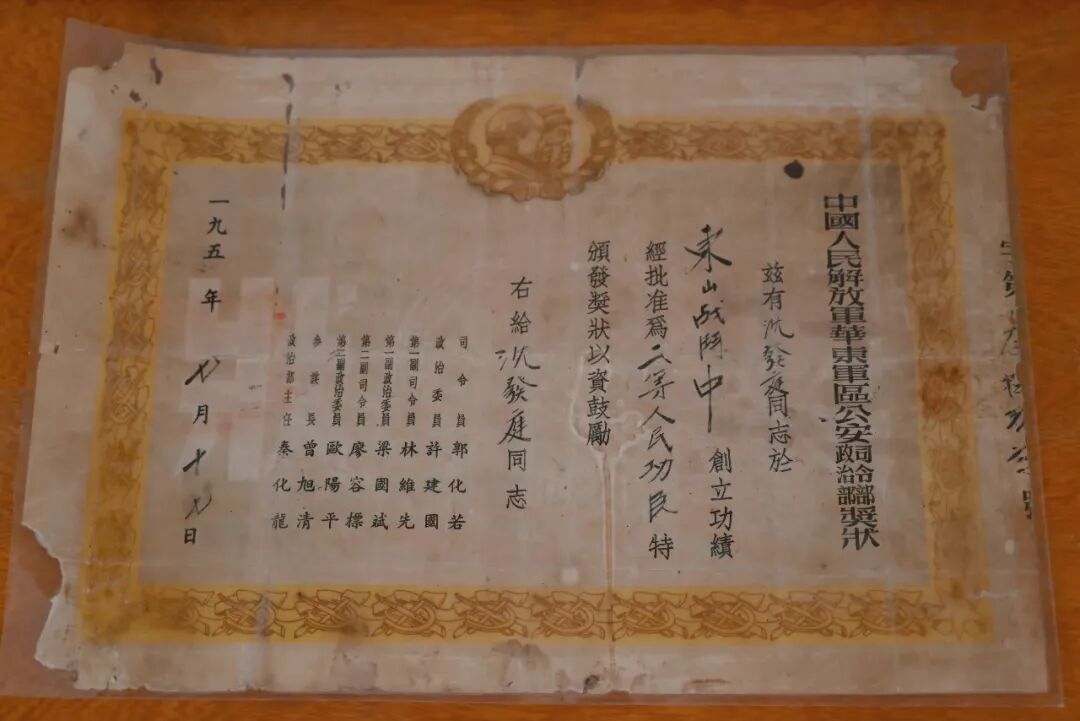 字第 號
中國人民解放軍華東軍區公安司令部政治部獎狀
兹有沈發庭同志於
東山战鬥中創立功績
經批准爲二等人民功臣特
頒發獎狀以資鼓勵
右給沈發庭同志
司令員郭化若
政治委員許建國
第一副司令員林維先
第一副政治委員梁國斌
第二副司令員廖容標
第二副政治委員歐陽平
參謀長曾旭清
政治部主任秦化龍
一九五 年七月十七日